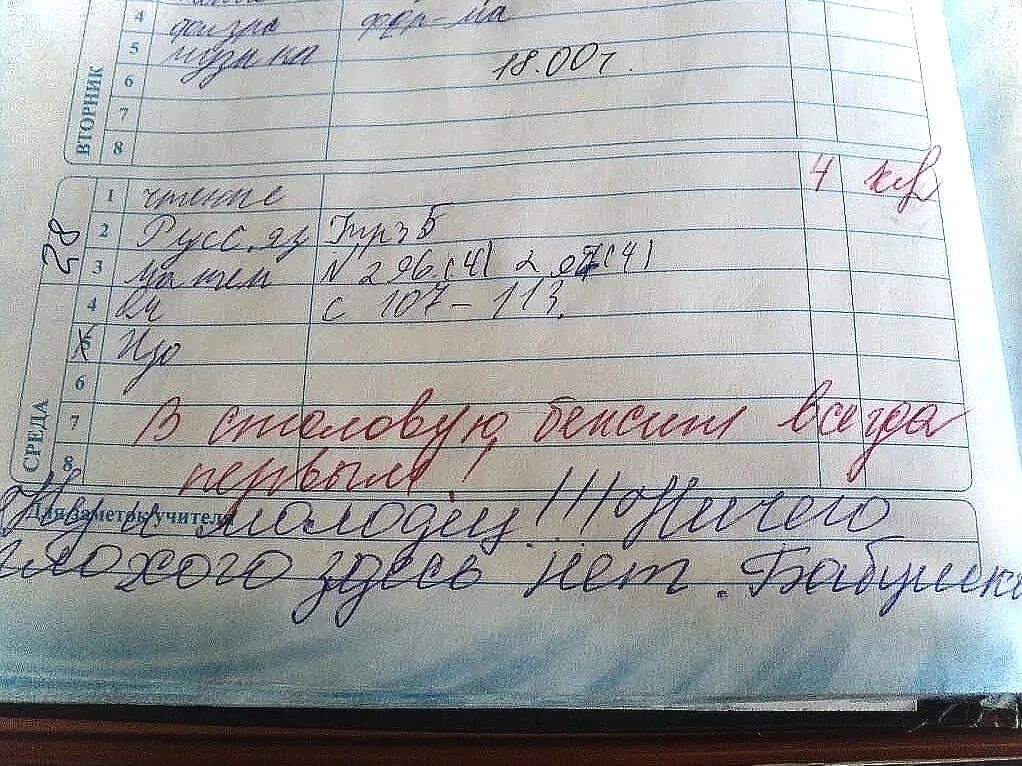 4 физра фор-ма
5 музыка 18.00г.
6
7
8
ВТОРНИК
1 чтение 4
2 Русс.яз Упр35
3 матем N 296.(4) 297(4)
4 с 107-113.
5 Изо
6
7 В столовую бежит всегда
8 первым!
28
СРЕДА
Для заметок учителя
Ну и молодец!!! Ничего
плохого здесь нет. Бабушка